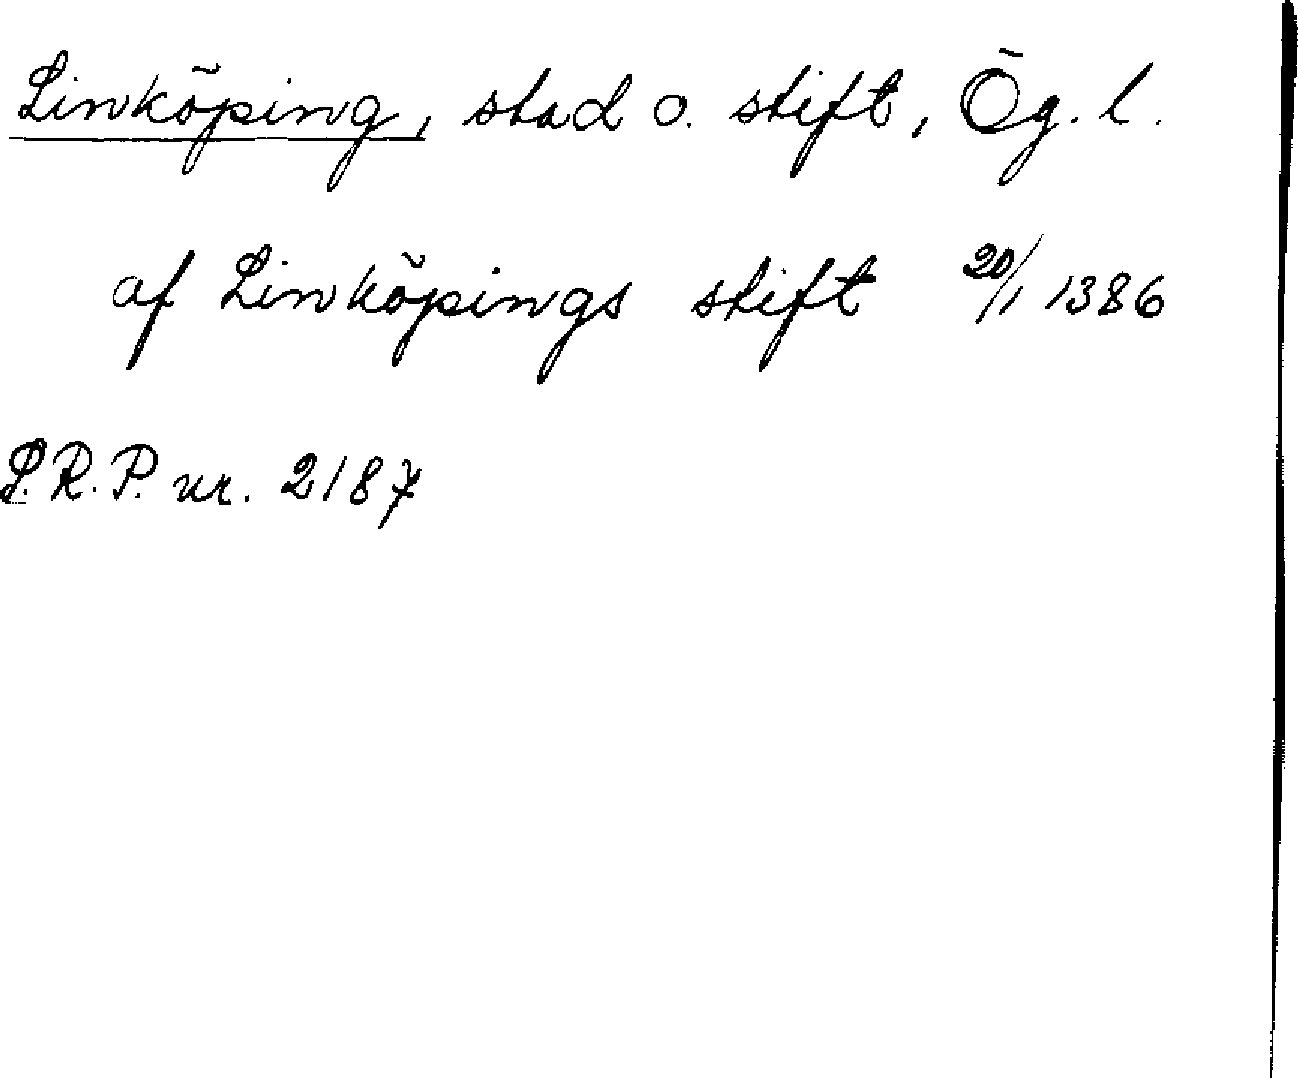 Linköping, stad o. stift, Ög. l.
af Linköpings stift 20/1 1386
S.R.P. nr. 2187